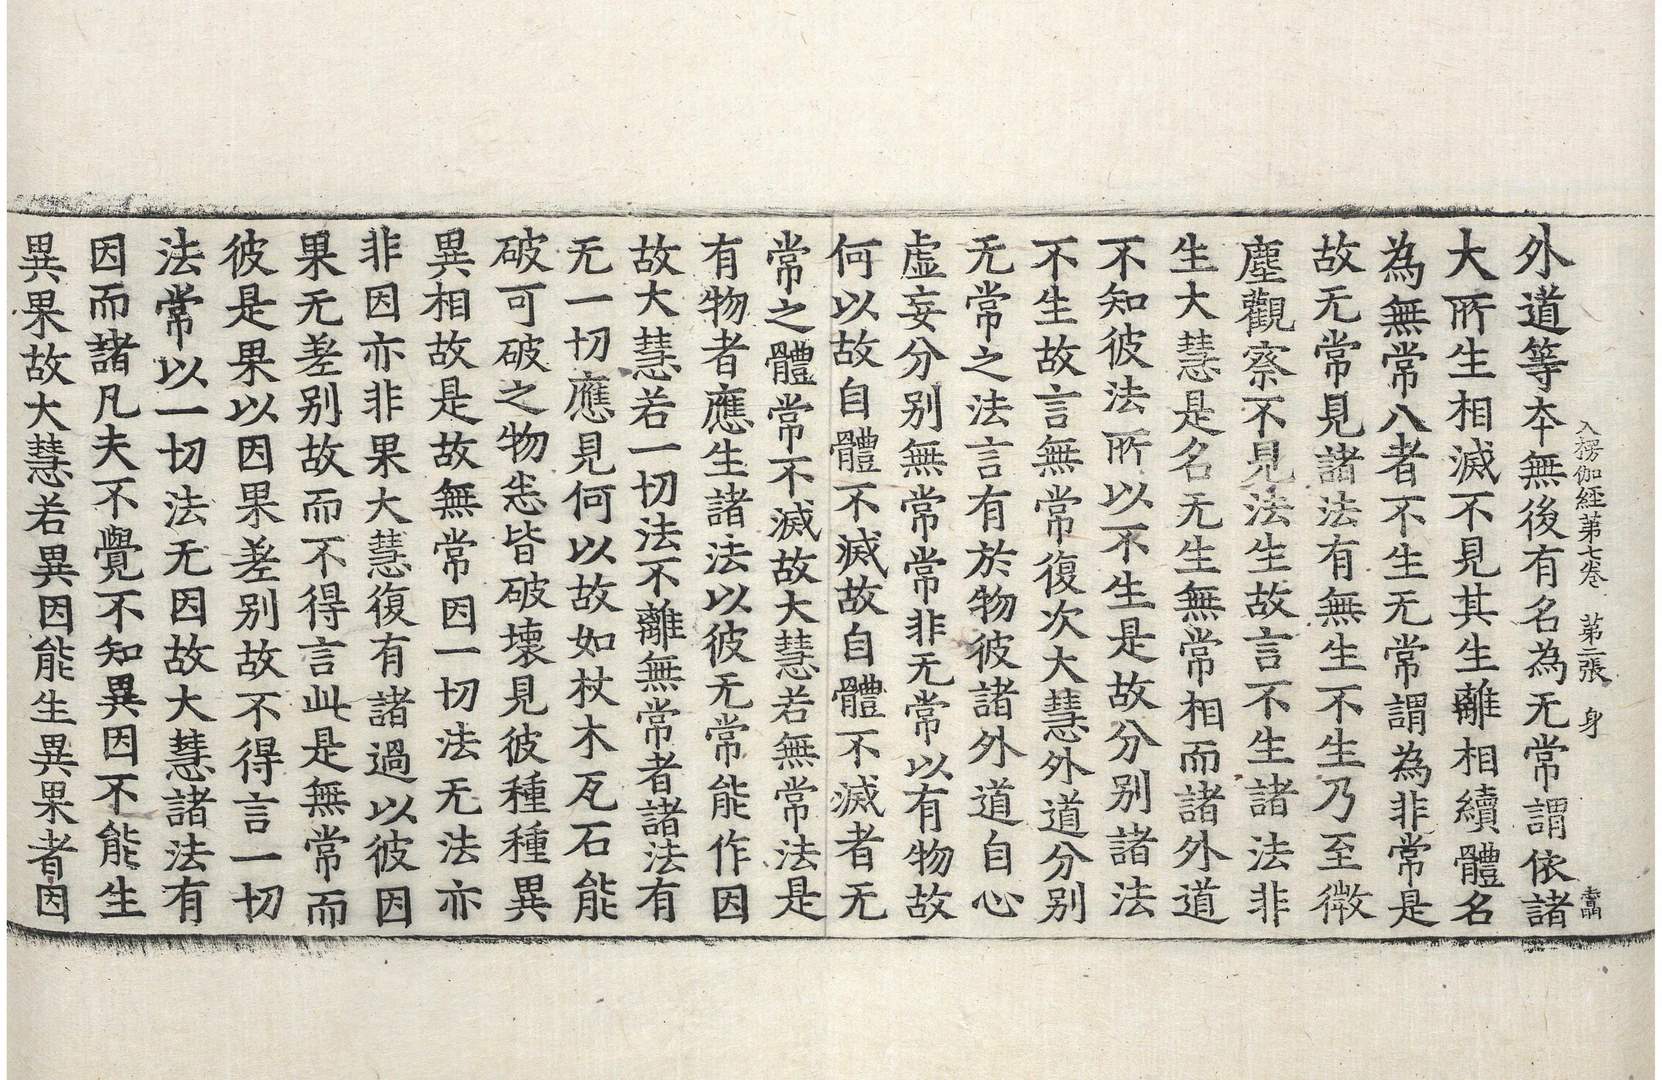 入楞伽經第七卷 第二張 身
外道等本無後有名為无常謂依諸
大所生相滅不見其生離相續體名
為無常八者不生无常謂為非常是
故无常見諸法有無生不生乃至微
塵觀察不見法生故言不生諸法非
生大慧是名无生無常相而諸外道
不知彼法所以不生是故分别諸法
不生故言無常復次大慧外道分别
无常之法言有於物彼諸外道自心
虛妄分别無常常非无常以有物故
何以故自體不滅故自體不滅者无
常之體常不滅故大慧若無常法是
有物者應生諸法以彼无常能作因
故大慧若一切法不離無常者諸法有
无一切應見何以故如杖木瓦石能
破可破之物悉皆破壞見彼種種異
異相故是故無常因一切法无法亦
非因亦非果大慧復有諸過以彼因
果无差别故而不得言此是無常而
彼是果以因果差别故不得言一切
法常以一切法无因故大慧諸法有
因而諸凡夫不覺不知異因不能生
異果故大慧若異因能生異果者因